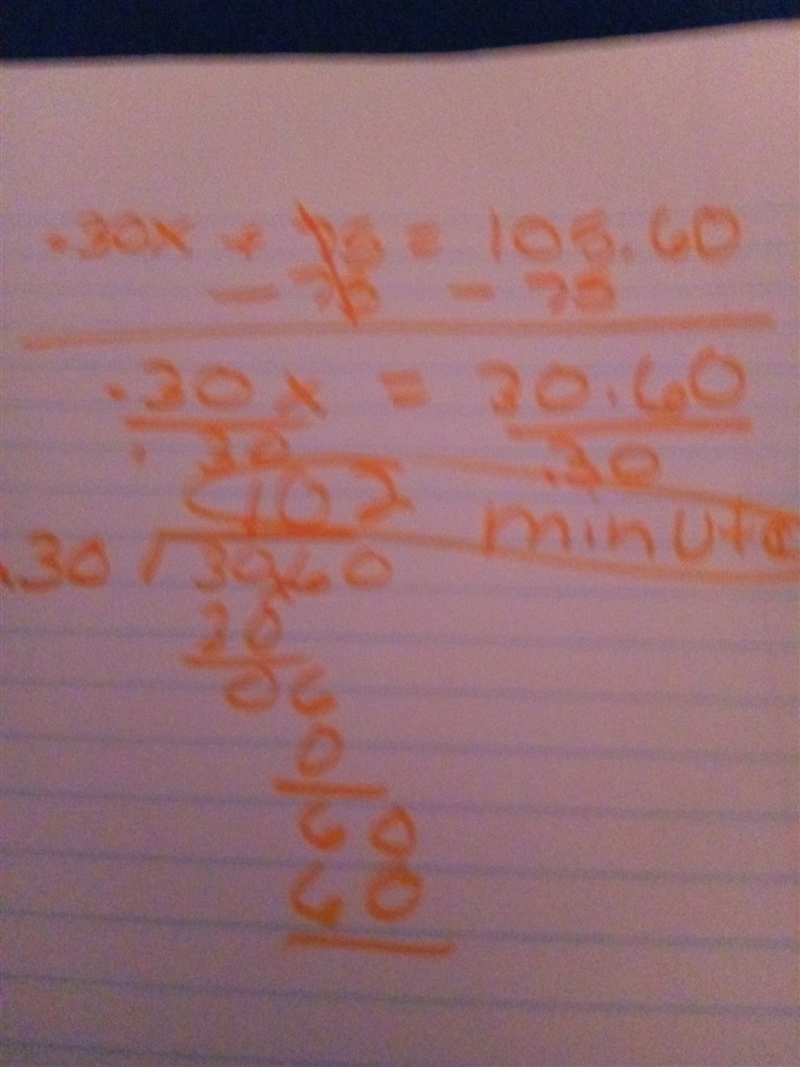 .30x + 75 = 105.60
- 75 - 75
.30x = 30.60
.30 .30
102 minute
.30 30.60
30
06
0
60
60